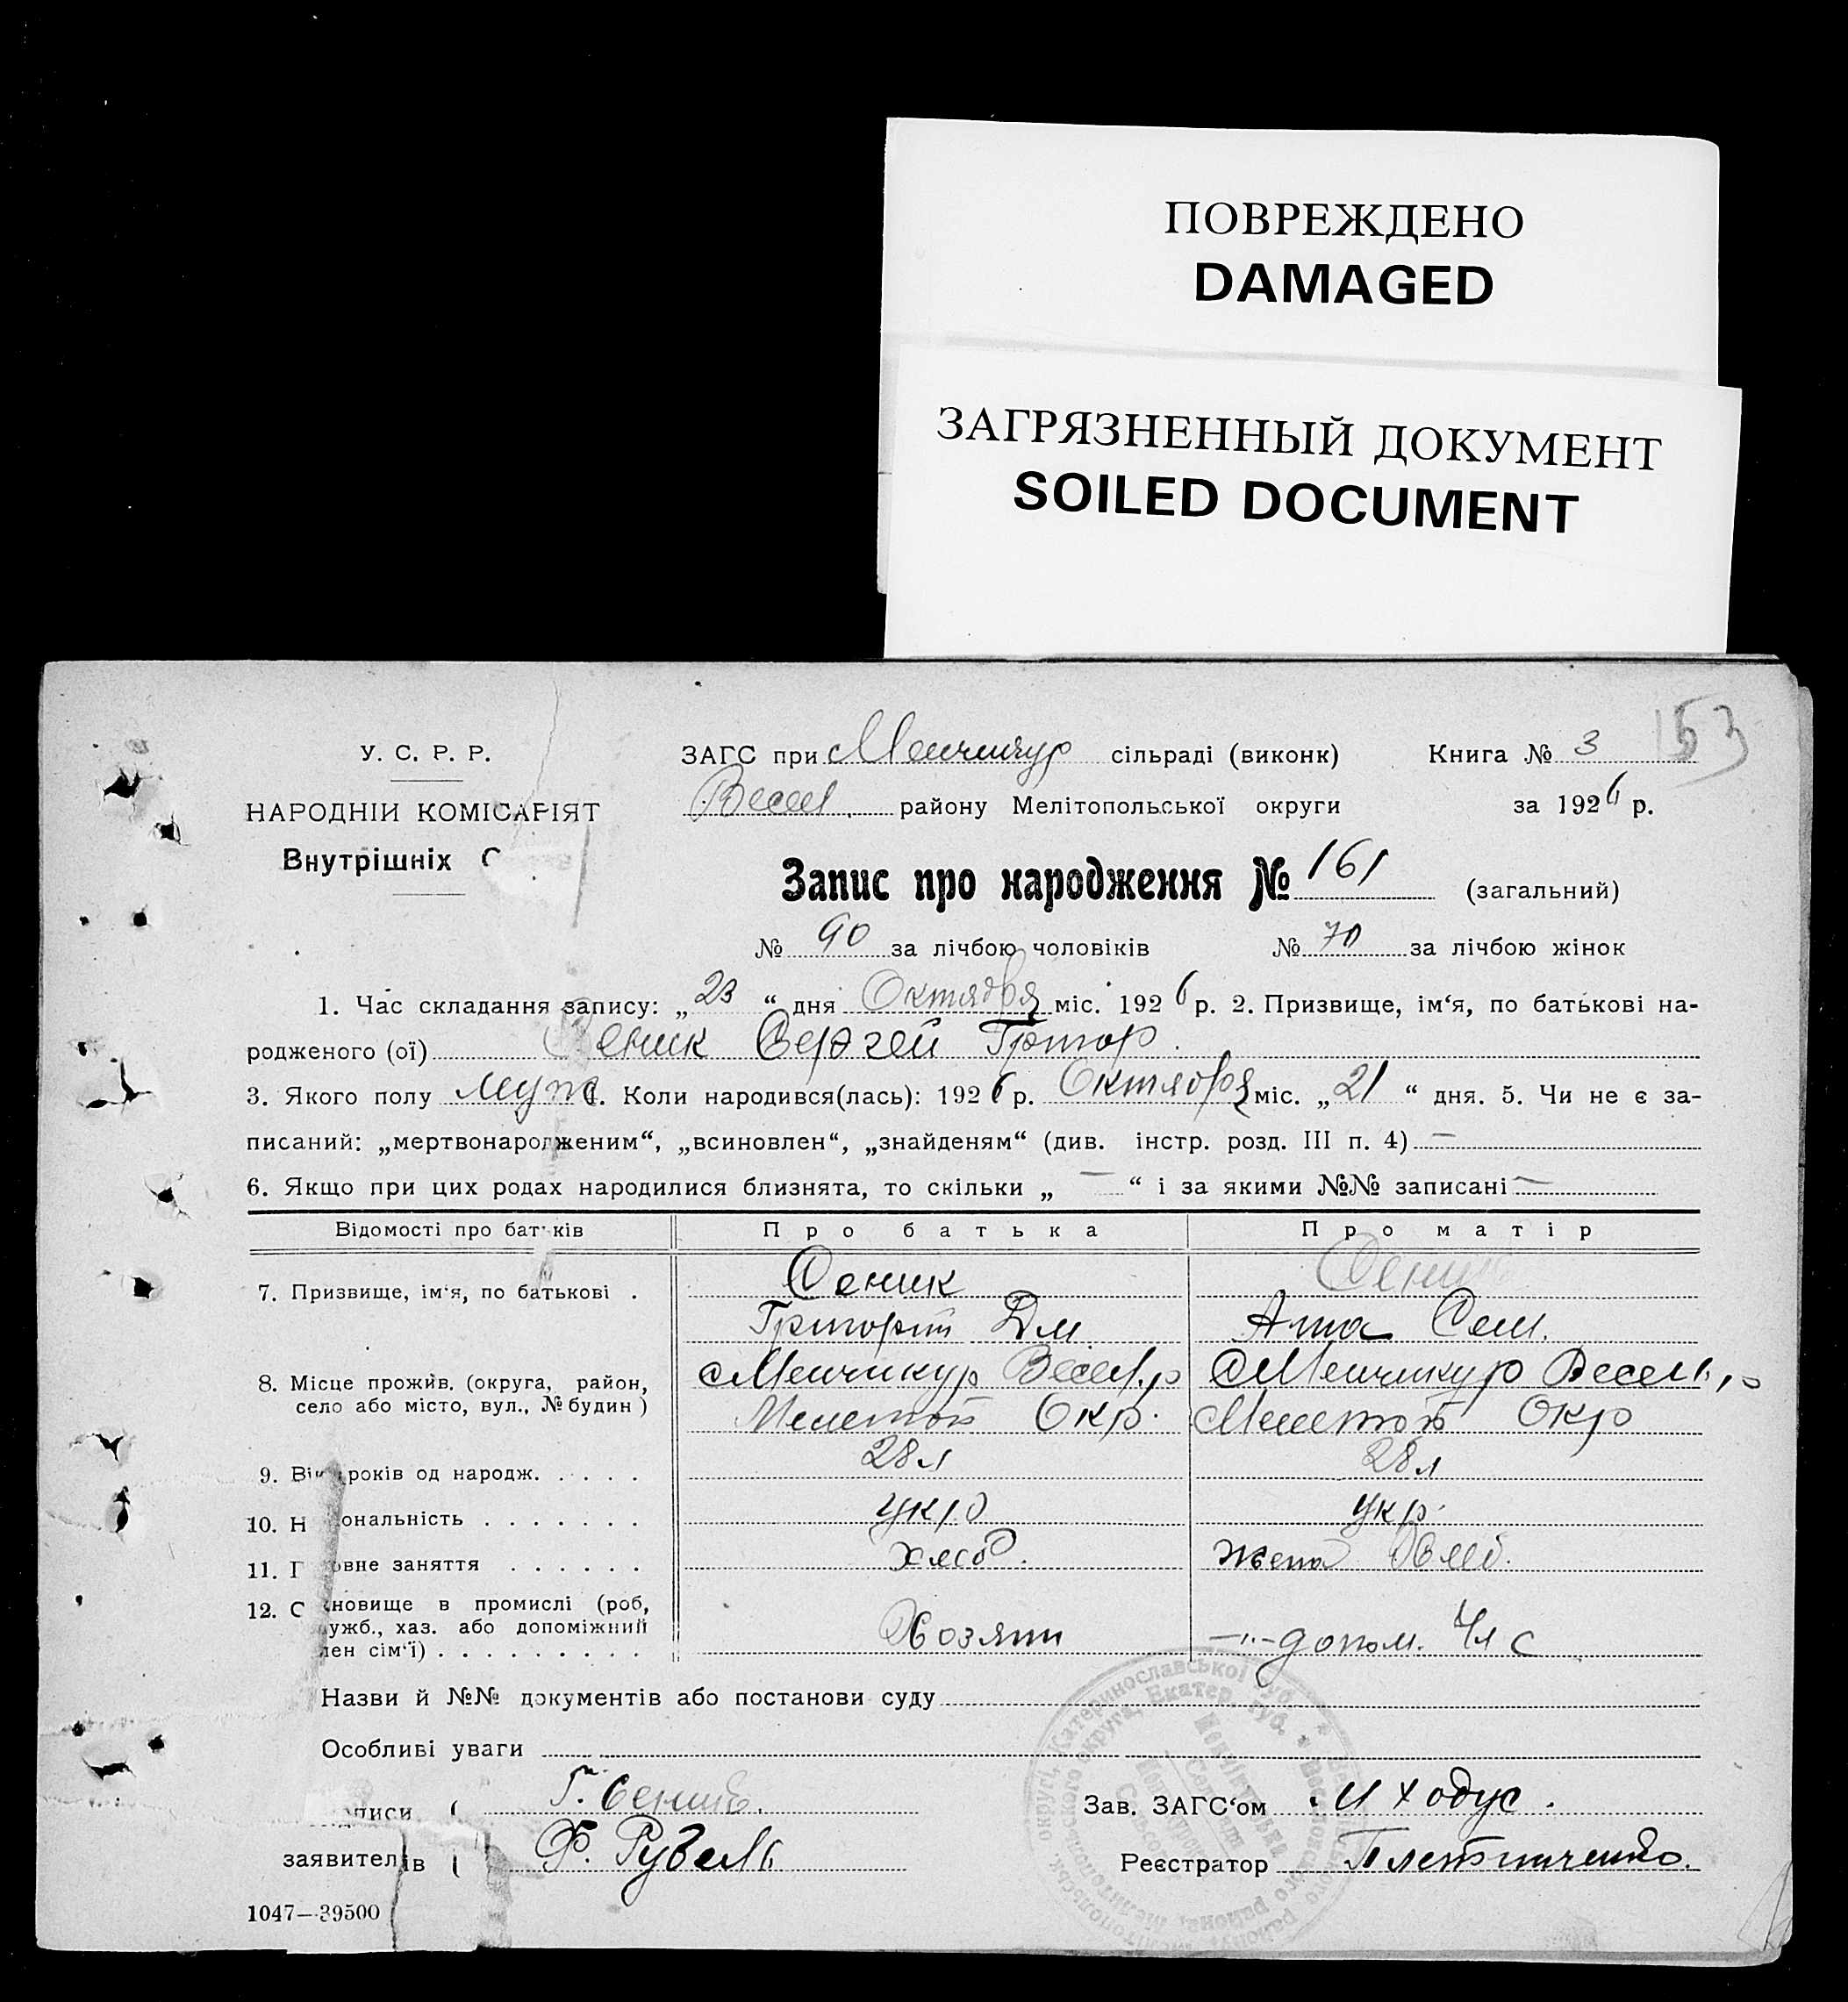 ПОВРЕЖДЕНО
DAMAGED
ЗАГРЯЗНЕННЫЙ ДОКУМЕНТ
SOILED DOCUMENT
153
У. С. Р. Р.
НАРОДНІЙ КОМІСАРІЯТ
Внутрішніх С
ЗАГС при Менчикур сільраді (виконк) Книга № 3
Весел. району Мелітопольської округи за 1926 р.
Запис про народження № 161 (загальний)
№ 90 за лічбою чоловіків № 70 за лічбою жінок
1. Час складання запису: „23“ дня Октября міс. 1926 р. 2. Призвище, ім‘я, по батькові на-
родженого (ої) Сеник Сергей Григор.
3. Якого полу муж 4. Коли народився(лась): 1926 р. Октября міс. „21“ дня. 5. Чи не є за-
писаний: „мертвонародженим“, „всиновлен“, „знайденям“ (див. інстр. розд. III п. 4) —
6. Якщо при цих родах народилися близнята, то скільки „ — “ і за якими №№ записані —
Відомості про батьків Про батька Про матір
7. Призвище, ім‘я, по батькові . Сеник Сеник
Григорий Дм Анна Сем.
8. Місце прожив. (округа, район, с Менчикур Весел. р с Менчикур Весел. р
село або місто, вул., № будин) Мелетоп Окр. Мелетоп Окр
9. Вік років од народж. . . . . 28 л 28 л
10. Н ональність . . . . . . . укр укр.
11. Г овне заняття . . . . . . хлеб. жена хлеб.
12. С новище в промислі (роб,
ужб., хаз. або допоміжний
лен сім‘ї) . . . . . . . . . Хозяин —"— допом. Чл с
Назви й №№ документів або постанови суду
Особливі уваги
писи ( Г. Сеник. Зав. ЗАГС‘ом И Ходус.
заявителів ( Ф. Рубель Реєстратор
1047—39500